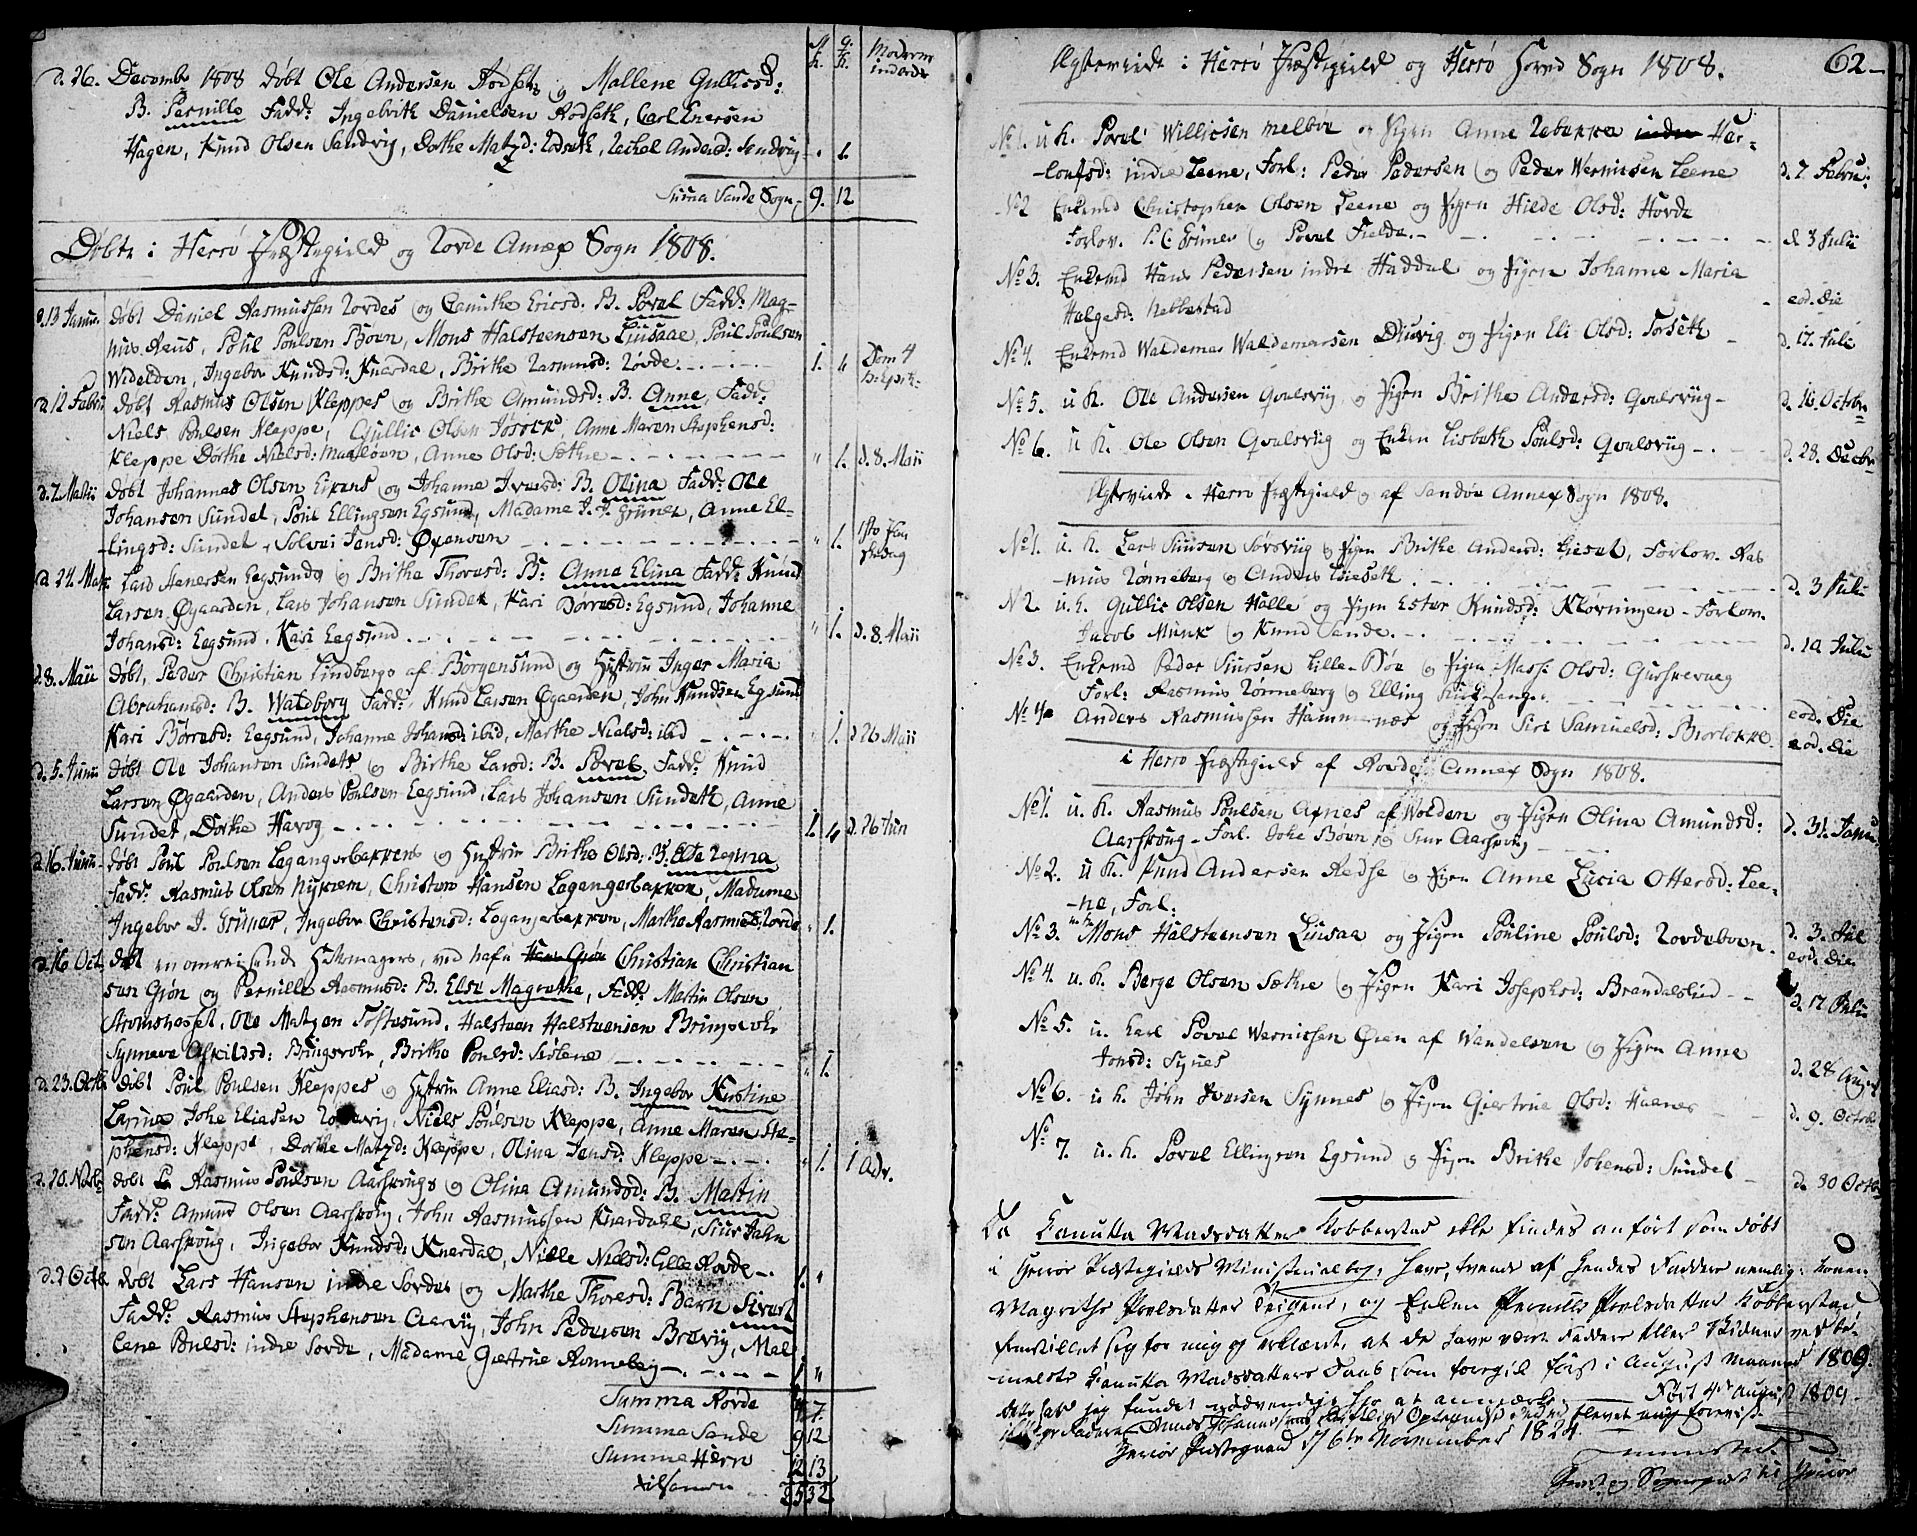 d. 26. Decembr 1808 døbt Ole Andersen Rødset og Mallene Gullicsd:
B. Pernille Fadd: Ingebrith Danielsen Rødseth, Carl Enersen
Hagen, Knud Olsen Sandvig, Dothe Matzd: Rødseth, Rachel Andersd: Sandvig - 1.
Suma Sande Sogn 9. 12
M. k. Q. k. Moderens indgde
Døbte i Herrø Præstegield og Rovde Annex Sogn 1808.
d. 13 Janu. døbt Daniel Rasmussen Rovdes og Canuthe Ericsd: B. Povel Fadd: Mag-
nus Aeus, Poul Poulsen Boven, Mons Halsteensen Liusaae, Poul Poulsen
Widelden, Ingebor Knudsd: Knardal, Brithe Rasmusd: Rovde 1. " Dom 4 p. Epih:
d. 12 Febru døbt Rasmus Olsen Kleppes og Brithe Amundsd: B. Anne, Fadd:
Niels Poulsen Kleppe, Gullic Olsen Jøsok, Anne Maren Stephensd:
Kleppe Dorthe Nielsd: Myrsløvn, Anne Olsd: Sæthre " 1. d. 8. Maii
d. 7. Martii døbt Johannes Olsen Eixens og Johanne Iversd: B. Olina Fadd: Ole
Johansen Sundet, Poul Ellingsen Egsund, Madame J. J. Gruner, Anne El-
lingsd: Sundet, Solvei Jensd: Øxensen " 1. 1ste Paa skedag
d. 24. Mart. Lars Stenersen Eegsunds og Brithe Thoresd: B: Anna Elina Fadd: Knud
Larsen Øgaarden, Lars Johansen Sundet, Kari Børresd: Egsund, Johanne
Johansd: Eegsund, Kari Eegsund " 1. d. 8. Maii
d. 8. Maii døbt, Peder Christian Lindbergs af Borgensund og Hustrue Inger Maria
Abrahamsd: B. Waldborg Fadd: Knud Larsen Øgaarden, John Knudsen Egsund
Kari Børresd: Eegsund, Johanne Johansd: ibid, Marthe Nielsd: ibid " 1. d 26 Maii
d. 5. Junii døbt Ole Johansen Sundets og Birthe Larsd: B. Povel, Fadd: Knud
Larsen Øgaarden, Anders Poulsen Eegsund, Lars Johansen Sundeth, Anne
Sundet, Dorthe Havog 1. " d. 26 Jun
d. 16. Junii døbt Poul Poulsen Legangerbakkens og Hustrue Brithe Olsd: B. Else Regina
Fadd: Rasmus Olsen Nykrem, Christen Hansen Legangerbakken, Madame
Ingebor J. Gruner, Ingebor Christensd: Legangerbakken, Marthe Rasmusd: Rovde " 1.
d. 16 Oct. døbt en omreisende Hattemagers, ved nafn Christian Christian
sen Grøn og Pernille Rasmusd: B. Else Magrethe, Fadd: Martin Olsen
Stromshesset, Ole Matzen Toftesund, Halsteen Halsteensen Bringsvohr
Synneve Askildsd: Bringsvohr, Brithe Poulsd: Siølene " 1.
d. 23. Octb døbt Poul Poulsen Kleppes og Hustrue Anne Eliasd: B. Ingebor Kirstine
Larine Johe Eliasen Rottevig, Niels Poulsen Kleppe, Anne Maren Ste-
phensd: Kleppe, Dorthe Matzd: Kleppe, Olina Jensd: Kleppe " 1. 1 Adv.
d. 20. Novb: døbt Rasmus Poulsen Aarskougs og Olina Amundsd: B. Martin
Fadd: Amund Olsen Aarskoug, John Rasmussen Knardahl, Siur John
sen Aarskoug, Ingebor Knudsd: Knardal, Nille Nielsd: Lille Rovde 1. "
d. 2 Octb døbt Lars Hansen indre Sordes og Marthe Thoresd: Barn Sivert
Fadd: Rasmus Stephensen Aarvig, John Pedersen Brevig, Mal-
lene Poulsd: indre Sorde, Madame Giertrue Rønneberg 1 "
Summa Rovde 4 7.
Summa Sande 9 12
Summa Herrø 12 13
tilsamen 25 32
Egteviede i Herrø Præstegield og Herrø Hoved Sogn 1808. 62
No 1. u. k. Povel Willicsen Melbøe og Pigen Anne Rebekka Her-
loufsd: indre Leene, Forl: Peder Pedersen og Peder Wernissen Leene d. 7 Febru:
No 2 Enkemd Christopher Olsen Leene og Pigen Hilde Olsd: Hovde
Forlov. P. C. Gruner og Povel Fielde d 3 Julii
No 3. Enkemd Hans Pedersen indre Haddal og Pigen Johanne Maria
Helgesd: Nebbestad eod. die
No 4. Enkemd Waldemar Waldemarsen Diuvig og Pigen Eli Olsd: Torseth d. 17. Julii
No 5. u k. Ole Andersen Qvalsviig og Pigen Brithe Andersd: Qvalsviig d. 16. Octobr
No 6. u k. Ole Olsen Qvalsviig og Enken Lisbeth Poulsd: Qvalsviig d. 28. Decbr
Egteviede i Herrø Præstegield og af Sandøe Annex Sogn 1808.
No 1. u. k. Lars Siursen Sørsviig og Pigen Brithe Andersd: Lieset, Forlov. Ras
mus Rønneberg og Anders Lieseth d. 3 Julii
N 2. u. k. Gullic Olsen Halle og Pigen Ester Knudsd: Kløvningen - Forlov.
Jacob Munk og Knud Sande d. 10 Julii
No 3. Enkemd Peder Siursen Lille-Bøe og Pigen Masse Olsd: Gurskevaag
Forl: Rasmus Rønneberg og Elling eod. die
No 4. Anders Rasmussen Hamnnæs og Pigen Siri Samuelsd: Biørlokke. eod. die
i Herrø Præstegield af Rovde Annex Sogn 1808.
No 1. u. k. Rasmus Poulsen Afnes af Wolden og Pigen Olina Amundsd:
Aarskoug - Forl. Johe Boven og Siur Aarskoug d. 31. Janu
No 2. u k. Knud Andersen Redse og Pigen Anne Lucia Ottersd: Lee-
ne, Forl: d. 3. Jul
No 3. Mons Halsteensen Liusaa og Pigen Pouline Poulsd: Rovdeboven. eod: die
No 4. u. k. Berge Olsen Sæthre og Pigen Kari Josephsd: Brandalslied d. 17 Julii
No 5. u. karl Povel Wernissen Øien af Wandelven og Pigen Anne
Jonsd: Synes d. 28 August
No 6. u. k. John Iversen Synnes og Pigen Giertrue Olsd: Haanes d. 9. Octobr
No 7. u. k. Povel Ellingsen Egsund og Pigen Brithe Johansd: Sundet d. 30 Octb
Da Canutta Madsdatter Kobberstad ikke findes anført som døbt
i Herrøe Præstegields Ministerialbog, have, trende af hendes Faddere nemlig: Konen
Magrethe Poulsdatter Teigene, og Enken Pernille Poulsdatter Kobberstad
fremstillet sig for mig og erklæret, at de have vært Faddere eller Vidner ved be-
meldte Canutta Madsdatters Daab som foregik først i August Maaned 1809.
dette har jeg fundet nødvendigt her at anmærke. Født 4de August 1809
Herrøe Præstegaard d 6te November 1824